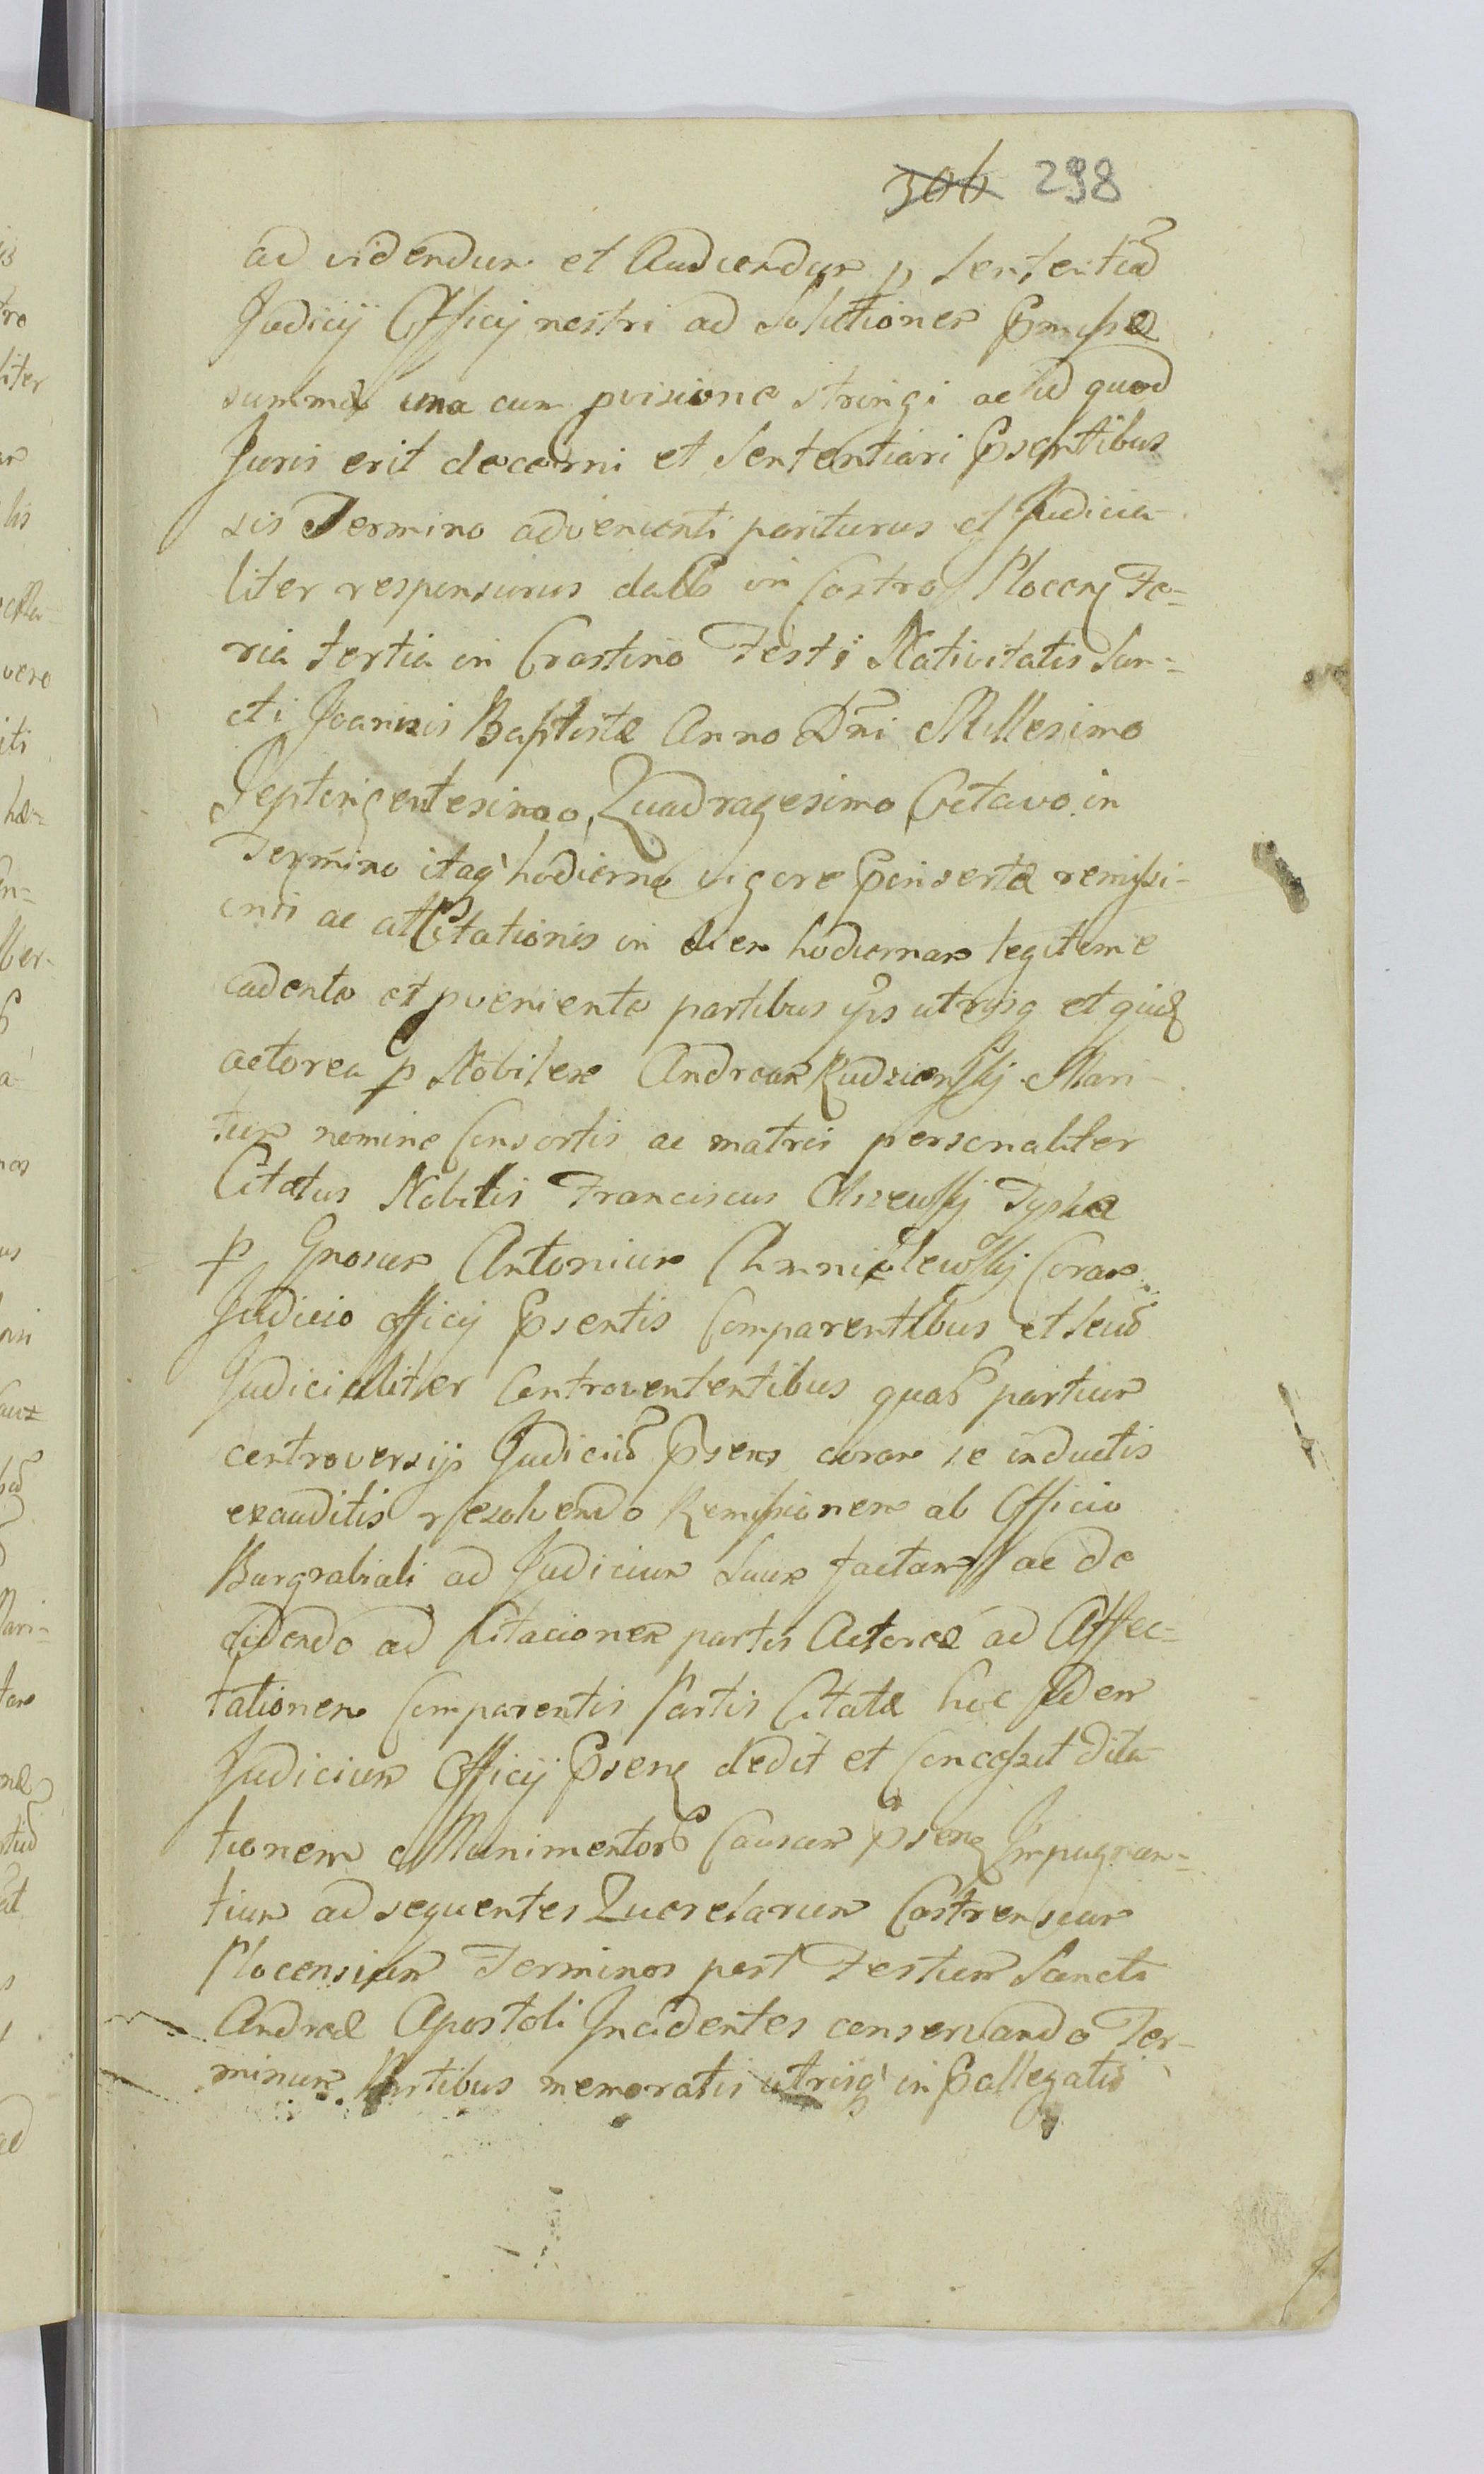 306 298
ad videndum et Audiendum p Sententiã
Judicij Officij nostri ad Solutionem Pmissæ
summæ una cum pvisione stringi ac id quod
Juris erit decerni et Sententiari Psentibus
sis Termino advenienti pariturus et Judicia-
liter responsurus datt in Castro Plocen Fe-
ria tertia in Crastino Festi Nativitatis San-
cti Joannis Baptistæ Anno Dni Millesimo
Septingentesimo Quadragesimo Octavo in
Termino itaq hodierno vigore Pinsertæ remissi-
onis ac attCitationis in diem hodiernam legitime
cadente et pveniente partibus ijs utrisq et quid
actorea p Nobilem Andream Rudzienskj Mari-
tum nomine Consortis ac matris personaliter
Citatus Nobilis Franciscus Olszewskj
p Gnosum Antonium Coram
Judicio officij Psentis Comparentibus et seũ
Judicialiter Controvertentibus quar partium
controversijs Judiciũ Psens coram se inductis
exauditis resolvendo Remissionem ab Officio
Burgrabiali ad Judicium Suum factam ac de
cidendo ad Citacionem partis Actoreæ ad Affec-
tationem Comparentis Partis Citatæ hoc idem
Judicium Officij Psens dedit et Concessit dila-
tionem Munimentor Causam psens Impugnan-
tium ad sequentes Querelarum Castrensium
Plocensium Terminos post Festum Sancti
Andreæ Apostoli Incidentes conservando Ter-
minum Partibus memoratis utrisq in Pallegatis